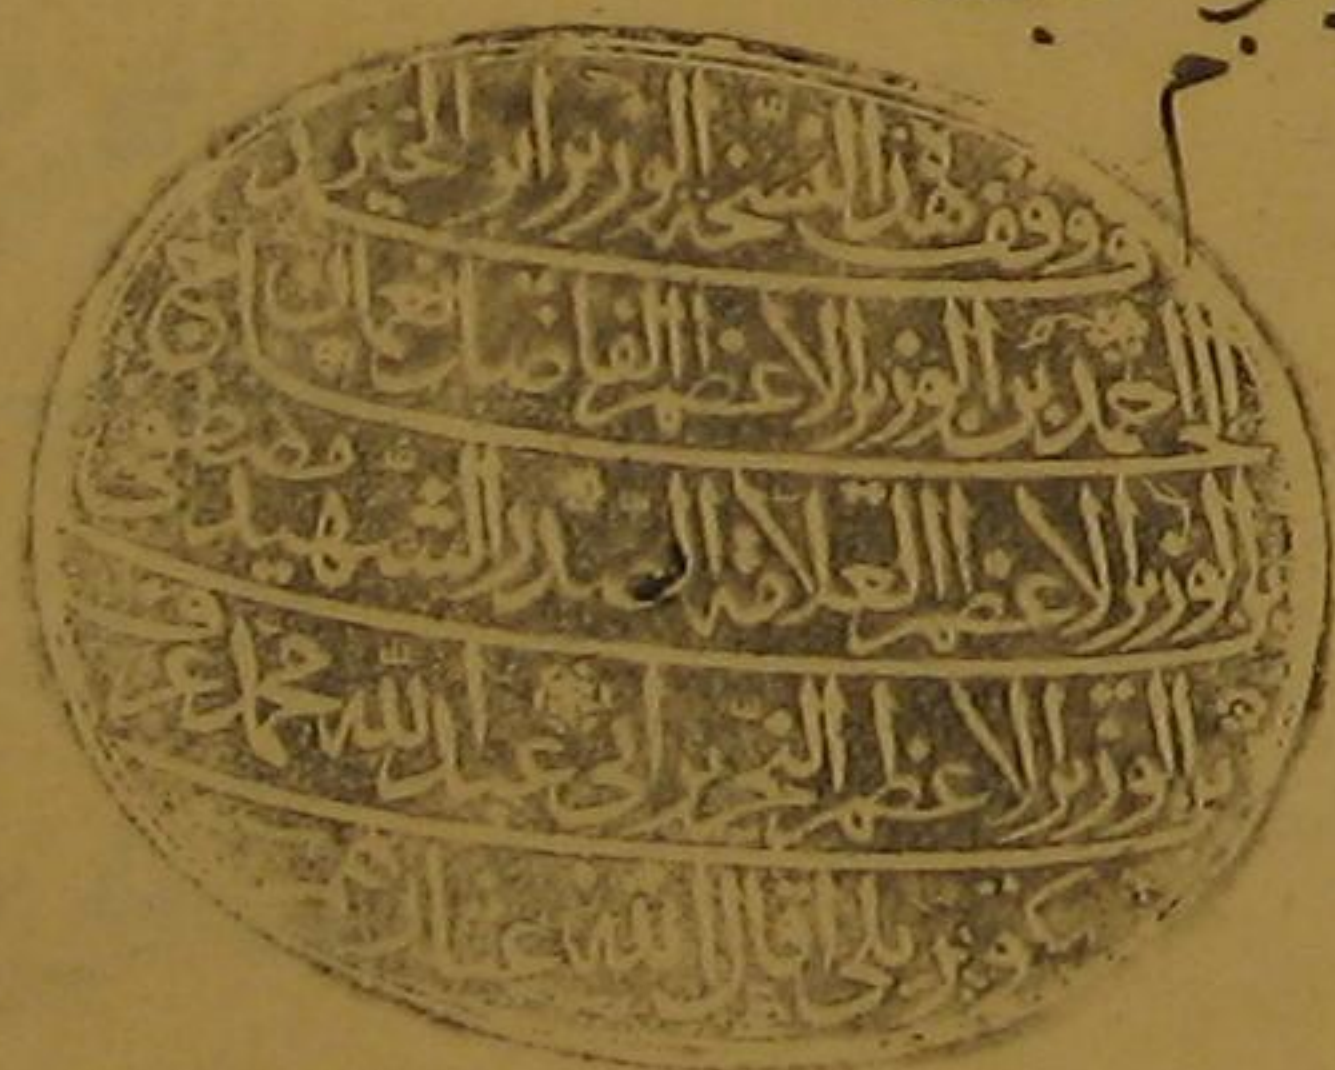 ووقف هذه النسخة الوزير ابو الخير
الحاج احمد بن الوزير الاعظم الفاضل نعمان
بن الوزير الاعظم العلامة الصدر الشهيد مصطفى
بن الوزير الاعظم النحرير ابي عبد الله محمد عرف
كوبريلي اقال الله عثارهم